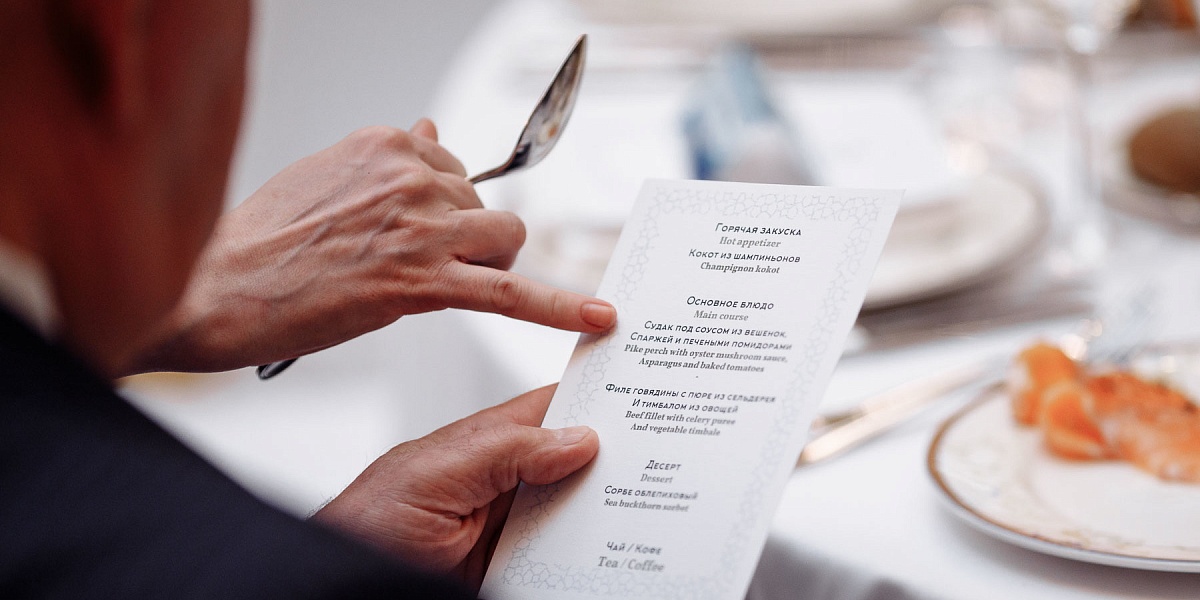 Горячая закуска
Hot appetizer
Кокот из шампиньонов
Champignon kokot
Основное блюдо
Main course
Судак под соусом из вешенок,
Спаржей и печеными помидорами
Pike perch with oyster mushroom sauce,
Asparagus and baked tomatoes
Филе говядины с пюре из сельдерея
И тимбалом из овощей
Beef fillet with celery puree
And vegetable timbale
Десерт
Dessert
Сорбе облепиховый
Sea buckthorn sorbet
Чай / Кофе
Tea / Coffee